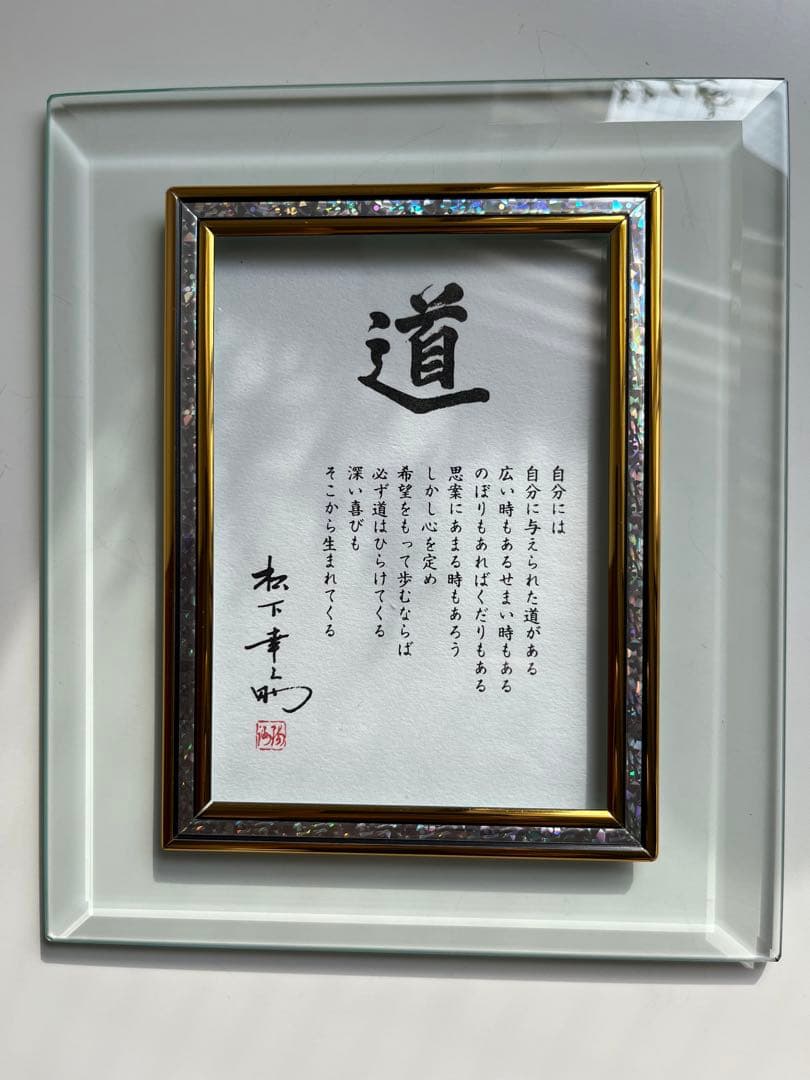 道
自分には
自分に与えられた道がある
広い時もあるせまい時もある
のぼりもあればくだりもある
思案にあまる時もあろう
しかし心を定め
希望をもって歩むならば
必ず道はひらけてくる
深い喜びも
そこから生まれてくる
松下幸之助